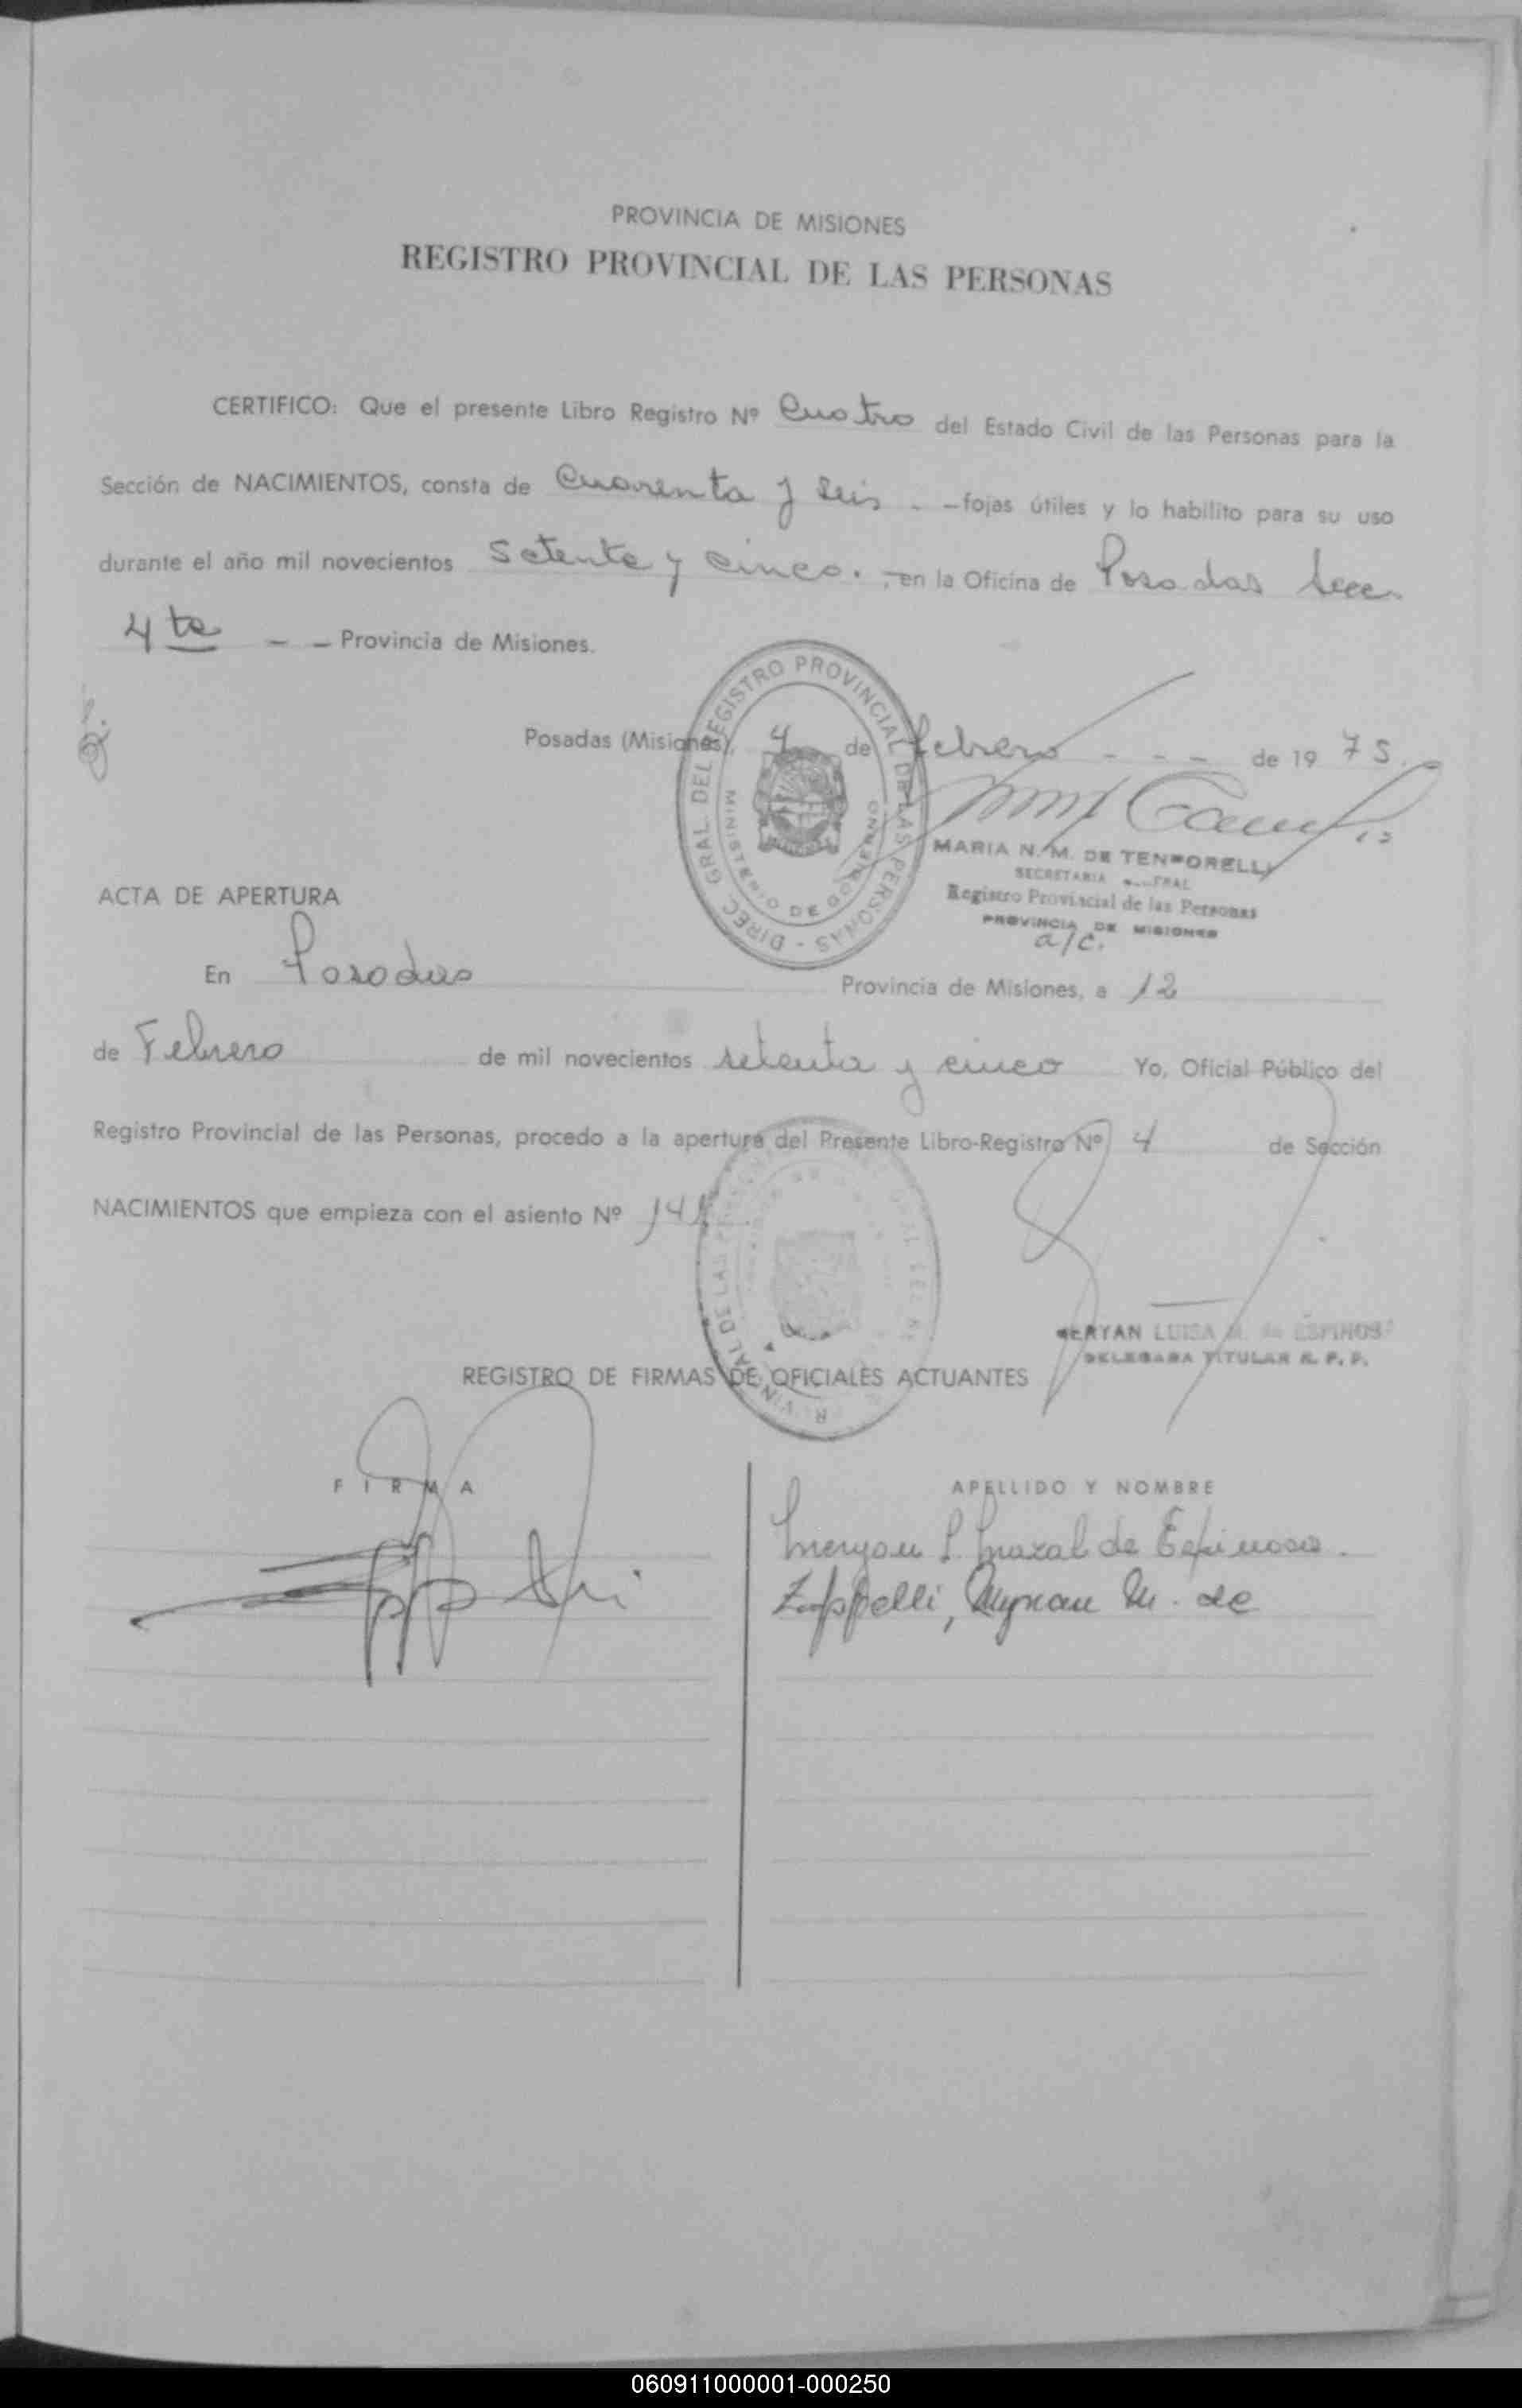 PROVINCIA DE MISIONES
REGISTRO PROVINCIAL DE LAS PERSONAS
CERTIFICO: Que el presente Libro Registro Nº Cuatro del Estado Civil de las Personas para la
Sección de NACIMIENTOS, consta de Cuarenta y seis - - fojas útiles y lo habilito para su uso
durante el año mil novecientos setenta y cinco. - en la Oficina de Posadas Secc.
4ta - - Provincia de Misiones.
Posadas (Misiones), 4 de febrero - - - de 1975.-
DIREC. GRAL. DEL REGISTRO PROVINCIAL DE LAS PERSONAS - MINISTERIO DE GOBIERNO
MARIA N. M. DE TEMPORELLI
SECRETARIA
Registro Provincial de las Personas
PROVINCIA DE MISIONES
a/c.
ACTA DE APERTURA
En Posadas Provincia de Misiones, a 12
de Febrero de mil novecientos setenta y cinco Yo, Oficial Público del
Registro Provincial de las Personas, procedo a la apertura del Presente Libro-Registro Nº 4 de Sección
NACIMIENTOS que empieza con el asiento Nº
LUISA M. de ESPINOSA
DELEGADA TITULAR R. P. P.
REGISTRO DE FIRMAS DE OFICIALES ACTUANTES
FIRMA
APELLIDO Y NOMBRE
Meryan L. Mazal de Espinosa.
Zappelli, M. de
060911000001-000250